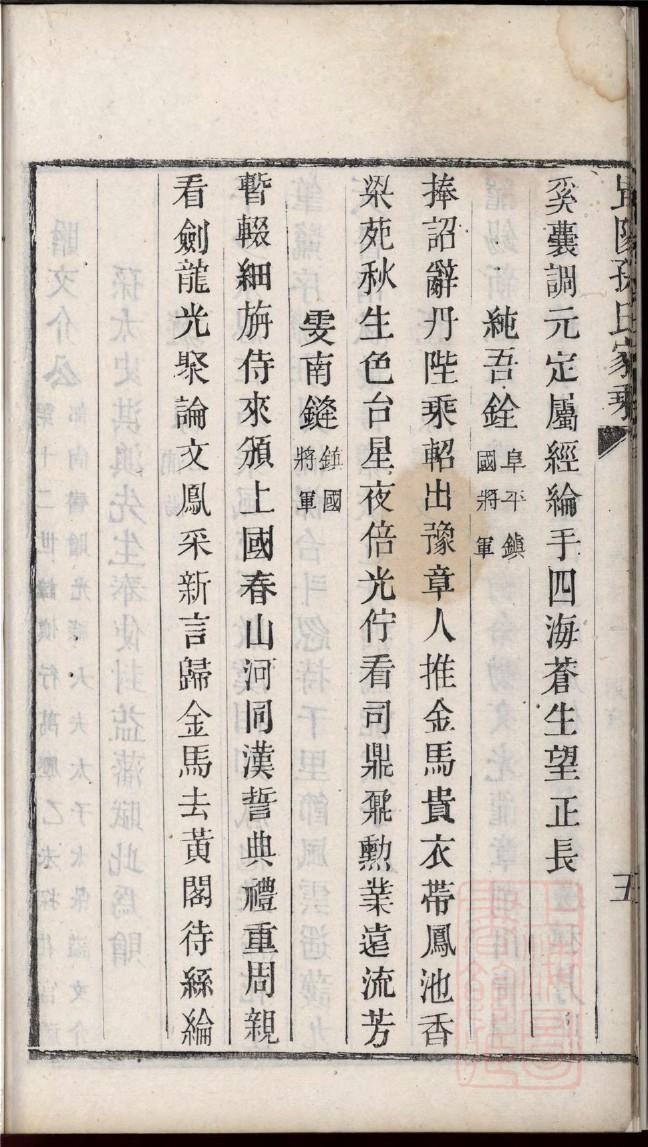 陽孫氏家乘
五
奚囊調元定屬經綸手四海蒼生望正長
純吾銓阜平鎮國將軍
捧詔辭丹陛乘軺出豫章人推金馬貴衣帶鳳池香
梁苑秋生色台星夜倍光佇看司鼎鼐勲業遠流芳
雯南鏠鎮國將軍
暫輟細旃侍來頒上國春山河同漢誓典禮重周親
看劍龍光聚論文鳳采新言歸金馬去黃閣待絲綸